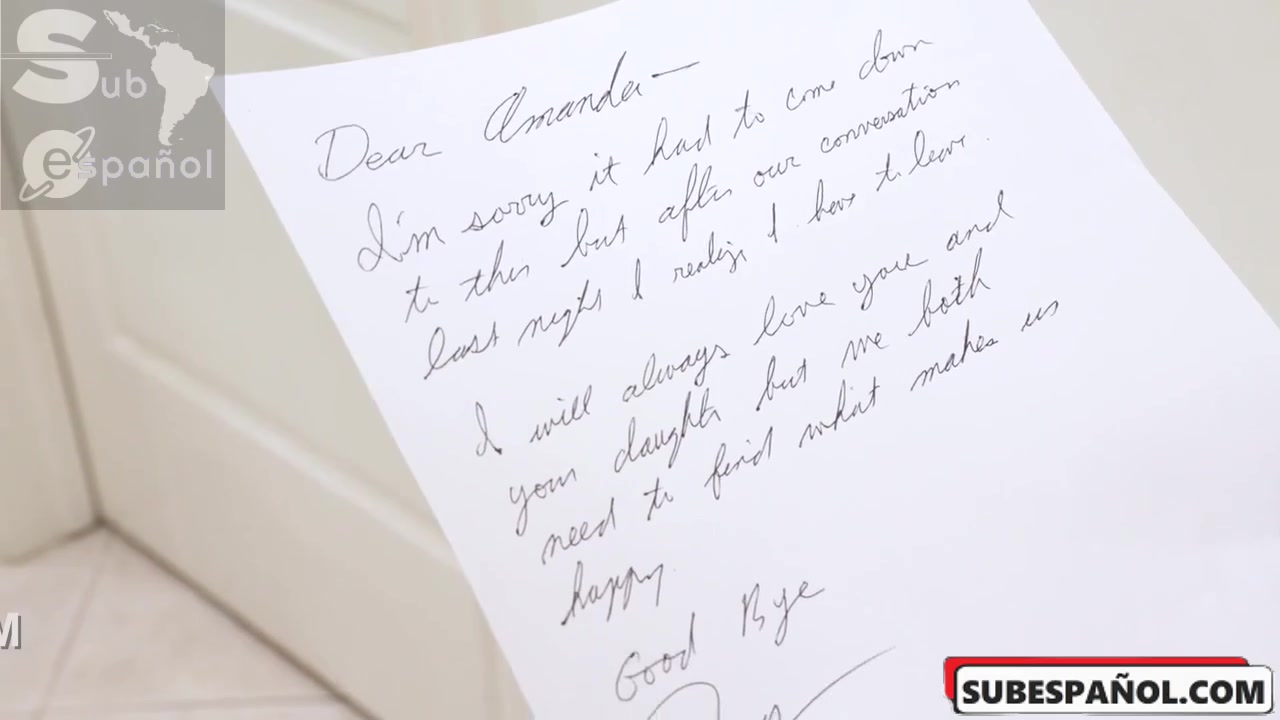 Sub
español
Dear Amanda—
I'm sorry it had to come down
to this but after our conversation
last night I realize I have to leave.
I will always love you and
your daughter but we both
need to find what makes us
happy.
Good Bye
M
SUBESPAÑOL.COM